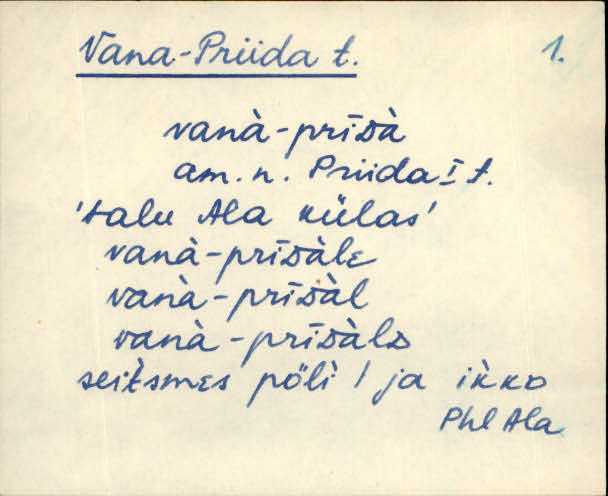 Vana-Priida t. 1.
vanà-prīᴅà
am. n. Priida I t.
'talu Ala külas'
vanà-prīᴅàlᴇ
vanà-prīᴅàl
vanà-prīᴅàlᴅ
seit̀smᴇs pöli / ja ik̀ko
Phl Ala